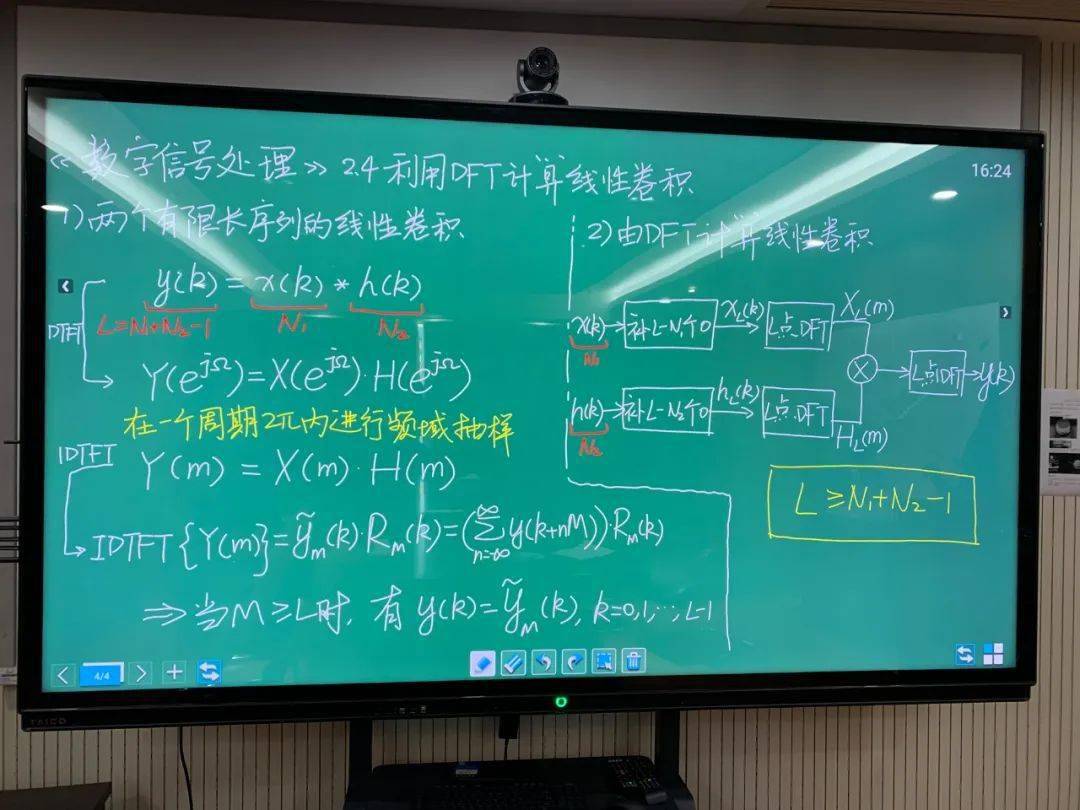 《数字信号处理》 2.4 利用DFT计算线性卷积
16:24
1)两个有限长序列的线性卷积
y(k) = x(k) * h(k)
L=N₁+N₂-1 N₁ N₂
DTFT
Y(e^{jΩ})=X(e^{jΩ})·H(e^{jΩ})
在一个周期2π内进行频域抽样
IDTFT
Y(m) = X(m)·H(m)
IDTFT{Y(m)}=ỹ_M(k)·R_M(k)=(∑_{n=-∞}^{∞} y(k+nM))·R_M(k)
⇒当M≥L时, 有 y(k)=ỹ_M(k), k=0,1,…,L-1
2)由DFT计算线性卷积
x(k) 补L-N₁个0 x_L(k) L点DFT X_L(m)
N₁
× L点IDFT y(k)
h(k) 补L-N₂个0 h_L(k) L点DFT H_L(m)
N₂
L≥N₁+N₂-1
4/4
TAICO